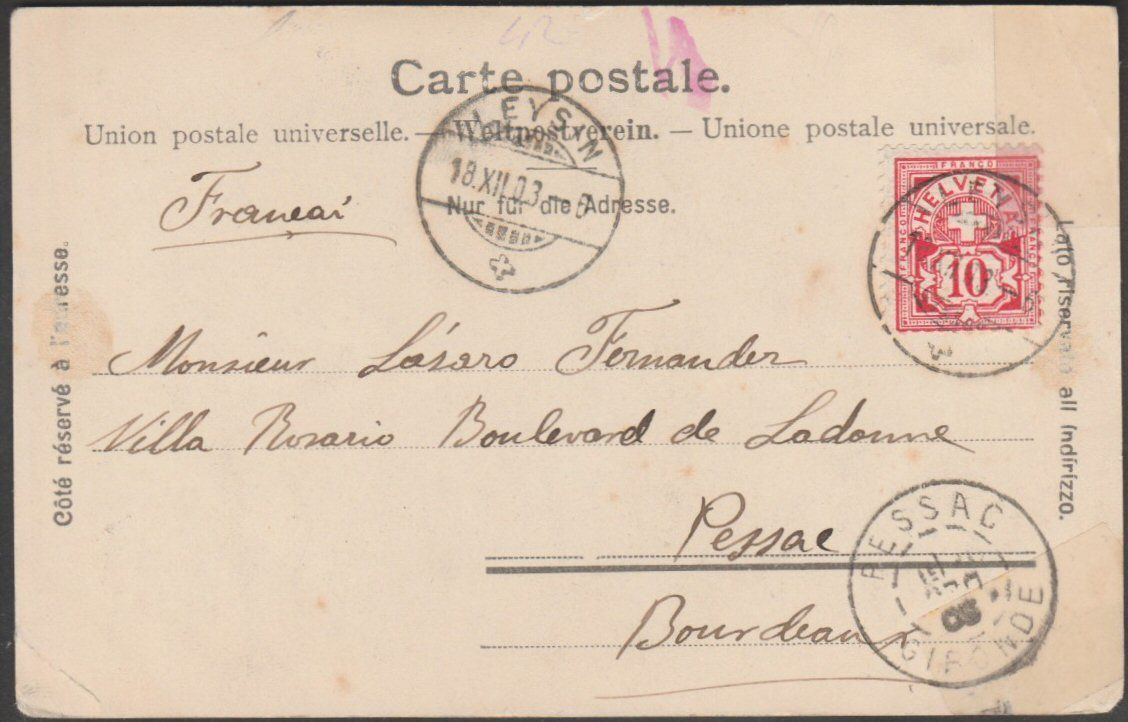 Carte postale.
Union postale universelle. — Weltpostverein. — Unione postale universale.
Nur für die Adresse.
LEYSIN
18.XII.03
FRANCO
HELVETIA
FRANCO
FRANCO
10
Côté réservé à l'adresse.
Lato riservato all indirizzo.
Monsieur Lázaro Fernander
Villa Rosario Boulevard de Ladonne
Pessac
Bourdeaux
PESSAC
03
GIRONDE